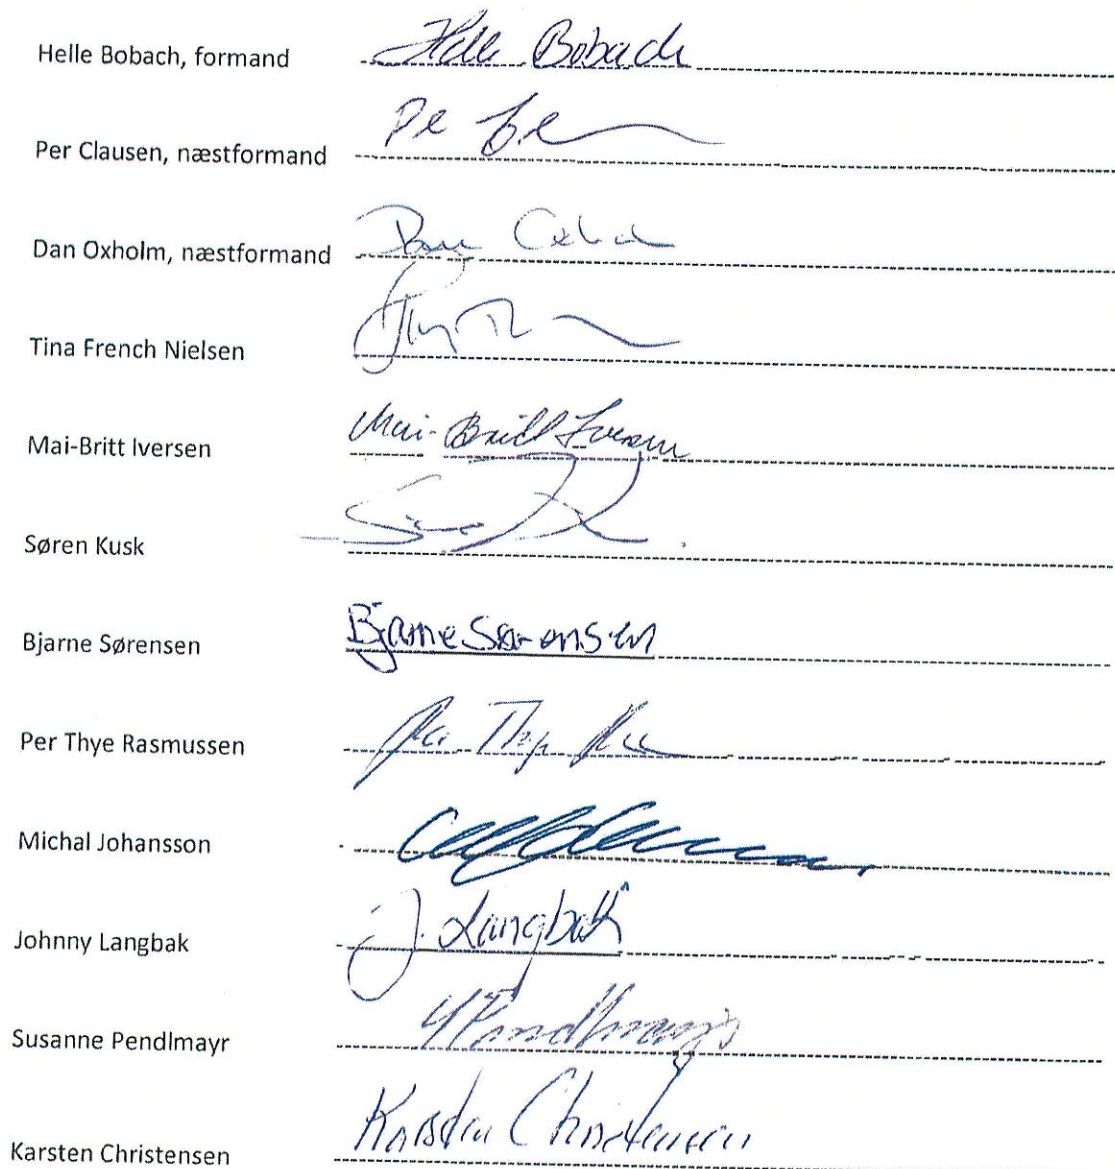 Helle Bobach, formand Helle Bobach
Per Clausen, næstformand
Dan Oxholm, næstformand
Tina French Nielsen
Mai-Britt Iversen Mai-Britt Iversen
Søren Kusk
Bjarne Sørensen Bjarne Sørensen
Per Thye Rasmussen Per Thye
Michal Johansson
Johnny Langbak J. Langbak
Susanne Pendlmayr Pendlmayr
Karsten Christensen Karsten Christensen